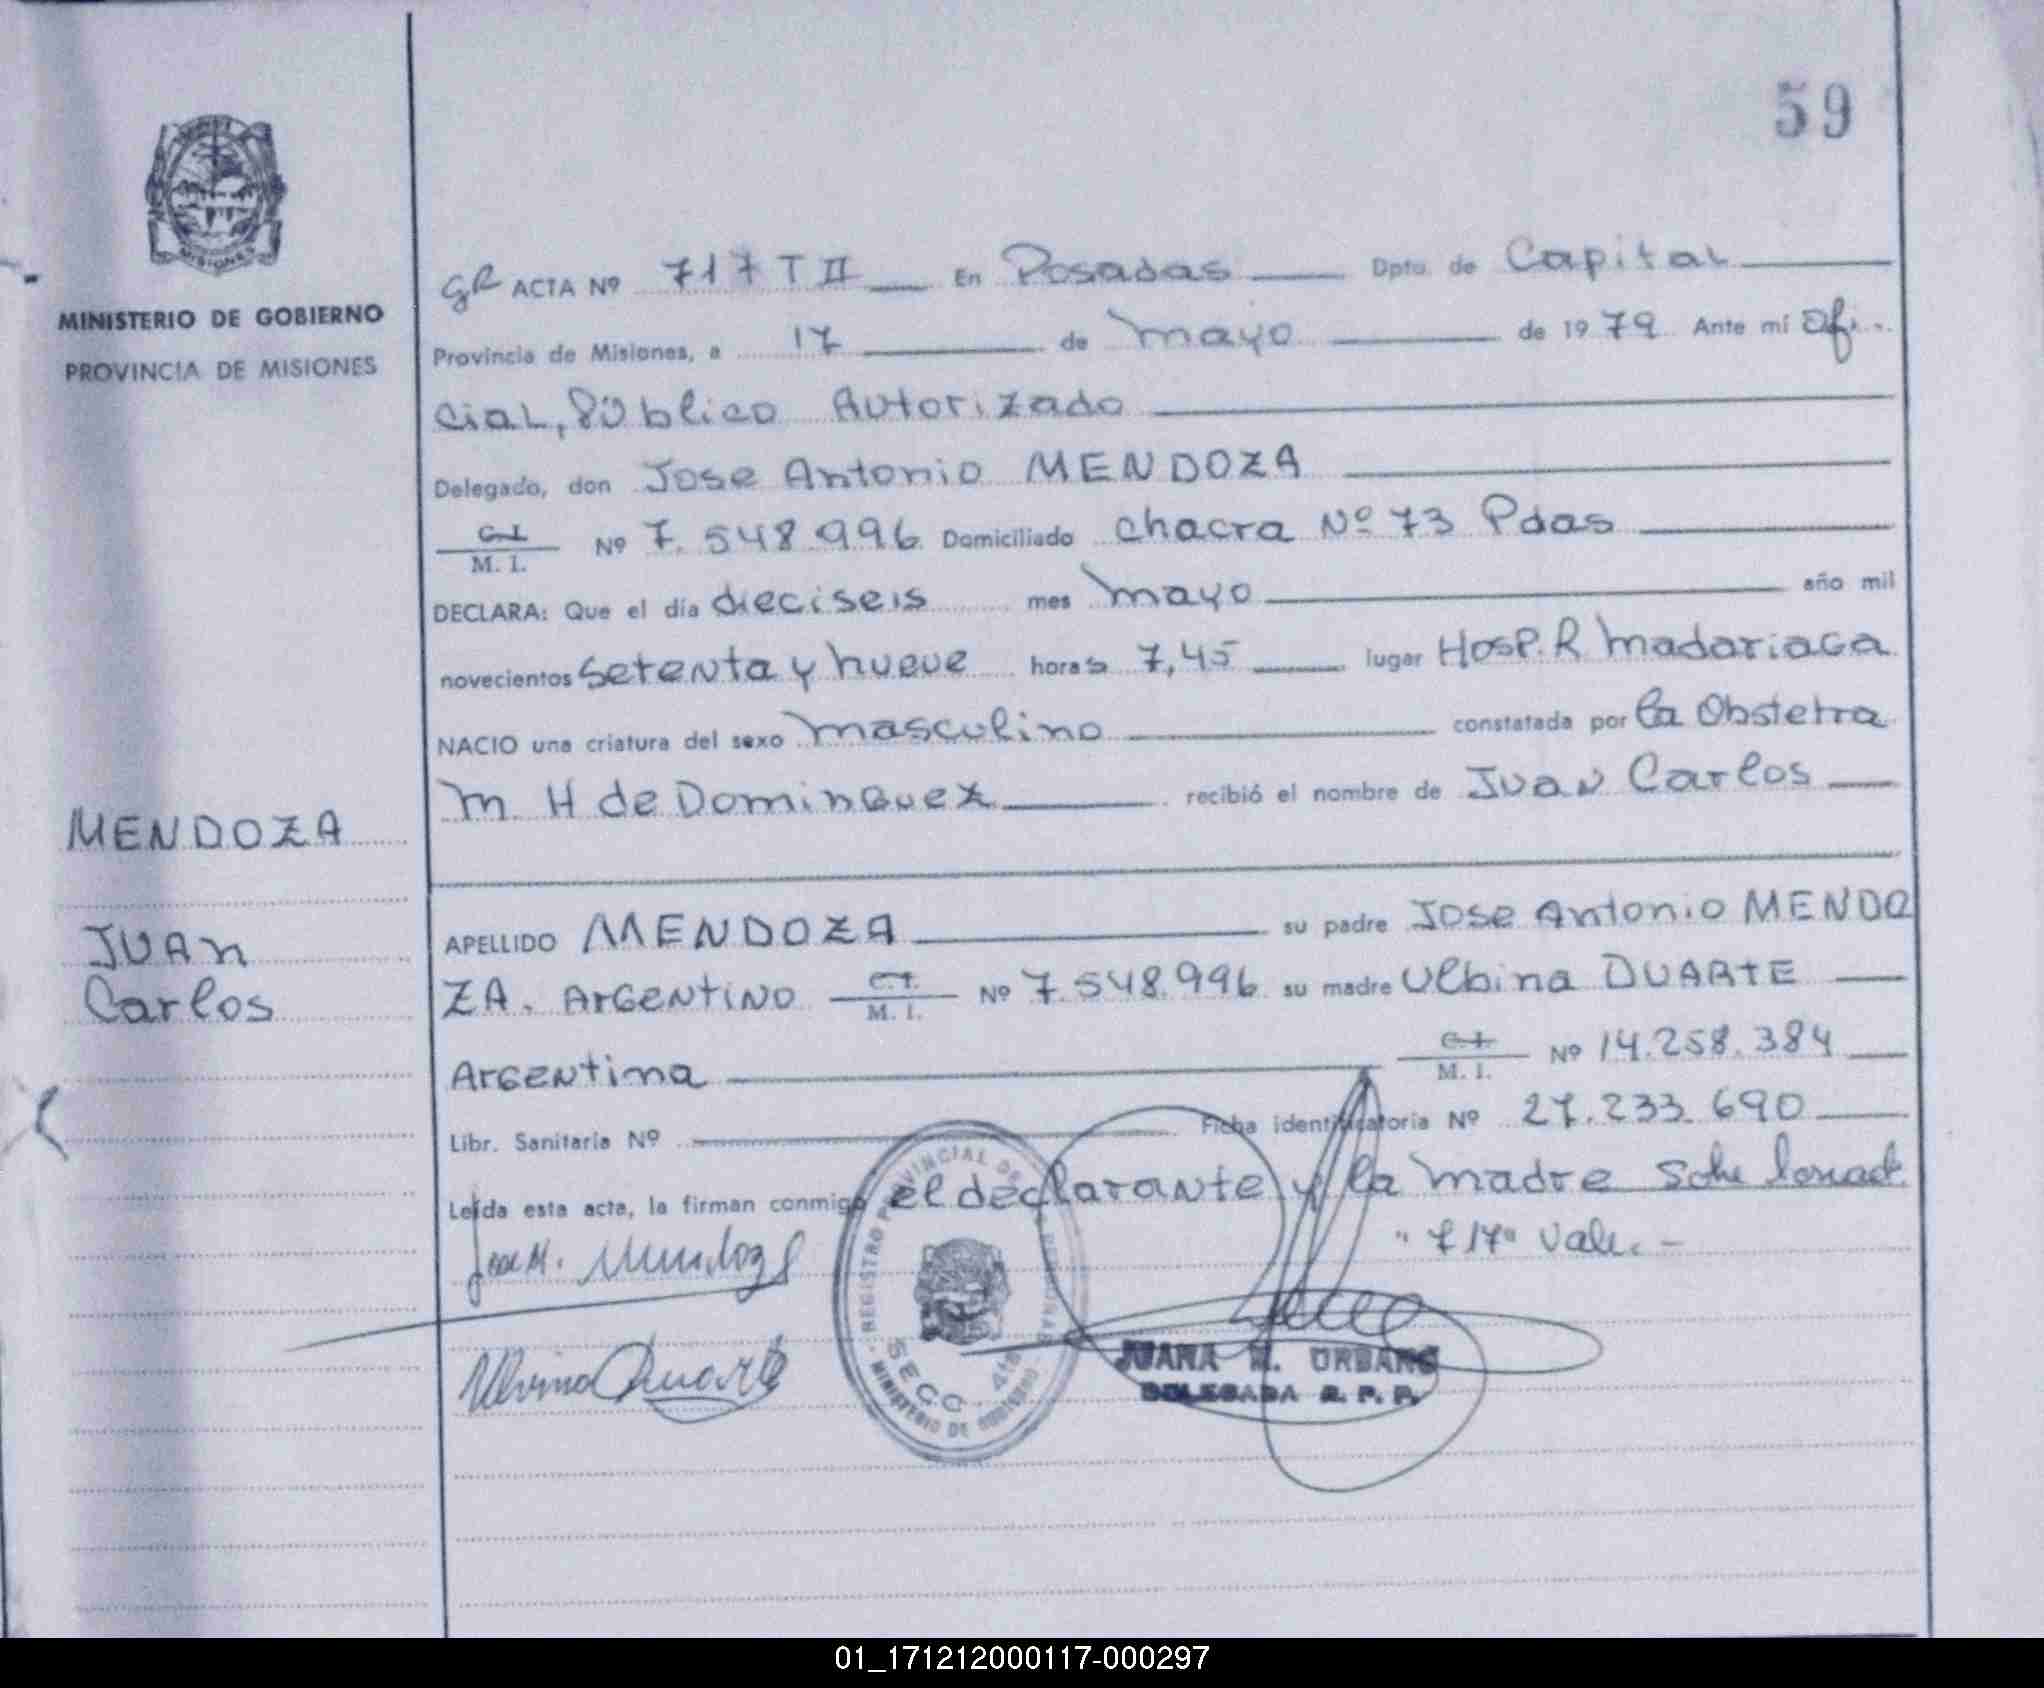 59
MISIONES
MINISTERIO DE GOBIERNO
PROVINCIA DE MISIONES
MENDOZA
JUAN
Carlos
gR ACTA Nº 717 T II En Posadas Dpto. de Capital
Provincia de Misiones, a 17 de mayo de 1979. Ante mí Ofi
cial, Público Autorizado
Delegado, don Jose Antonio MENDOZA
C.I. M. I. Nº 7.548.996 Domiciliado Chacra Nº 73 Pdas
DECLARA: Que el día dieciseis mes mayo año mil
novecientos setenta y nueve horas 7,45 lugar Hosp. R Madariaga
NACIO una criatura del sexo masculino constatada por la Obstetra
M. H de Dominguez recibió el nombre de Juan Carlos
APELLIDO MENDOZA su padre Jose Antonio MENDO
ZA. Argentino C.I. M. I. Nº 7.548.996 su madre Ulbina DUARTE
Argentina C.I. M. I. Nº 14.258.384
Libr. Sanitaria Nº Ficha identificatoria Nº 27.233.690
Leída esta acta, la firman conmigo el declarante y la madre
"717" Vale.-
Jose A. Mendoza
Ulvina Duarte
REGISTRO PROVINCIAL DE LAS PERSONAS
SECC. 4ta
MINISTERIO DE GOBIERNO
JUANA M. URBANO
DELEGADA R. P. P.
01_171212000117-000297